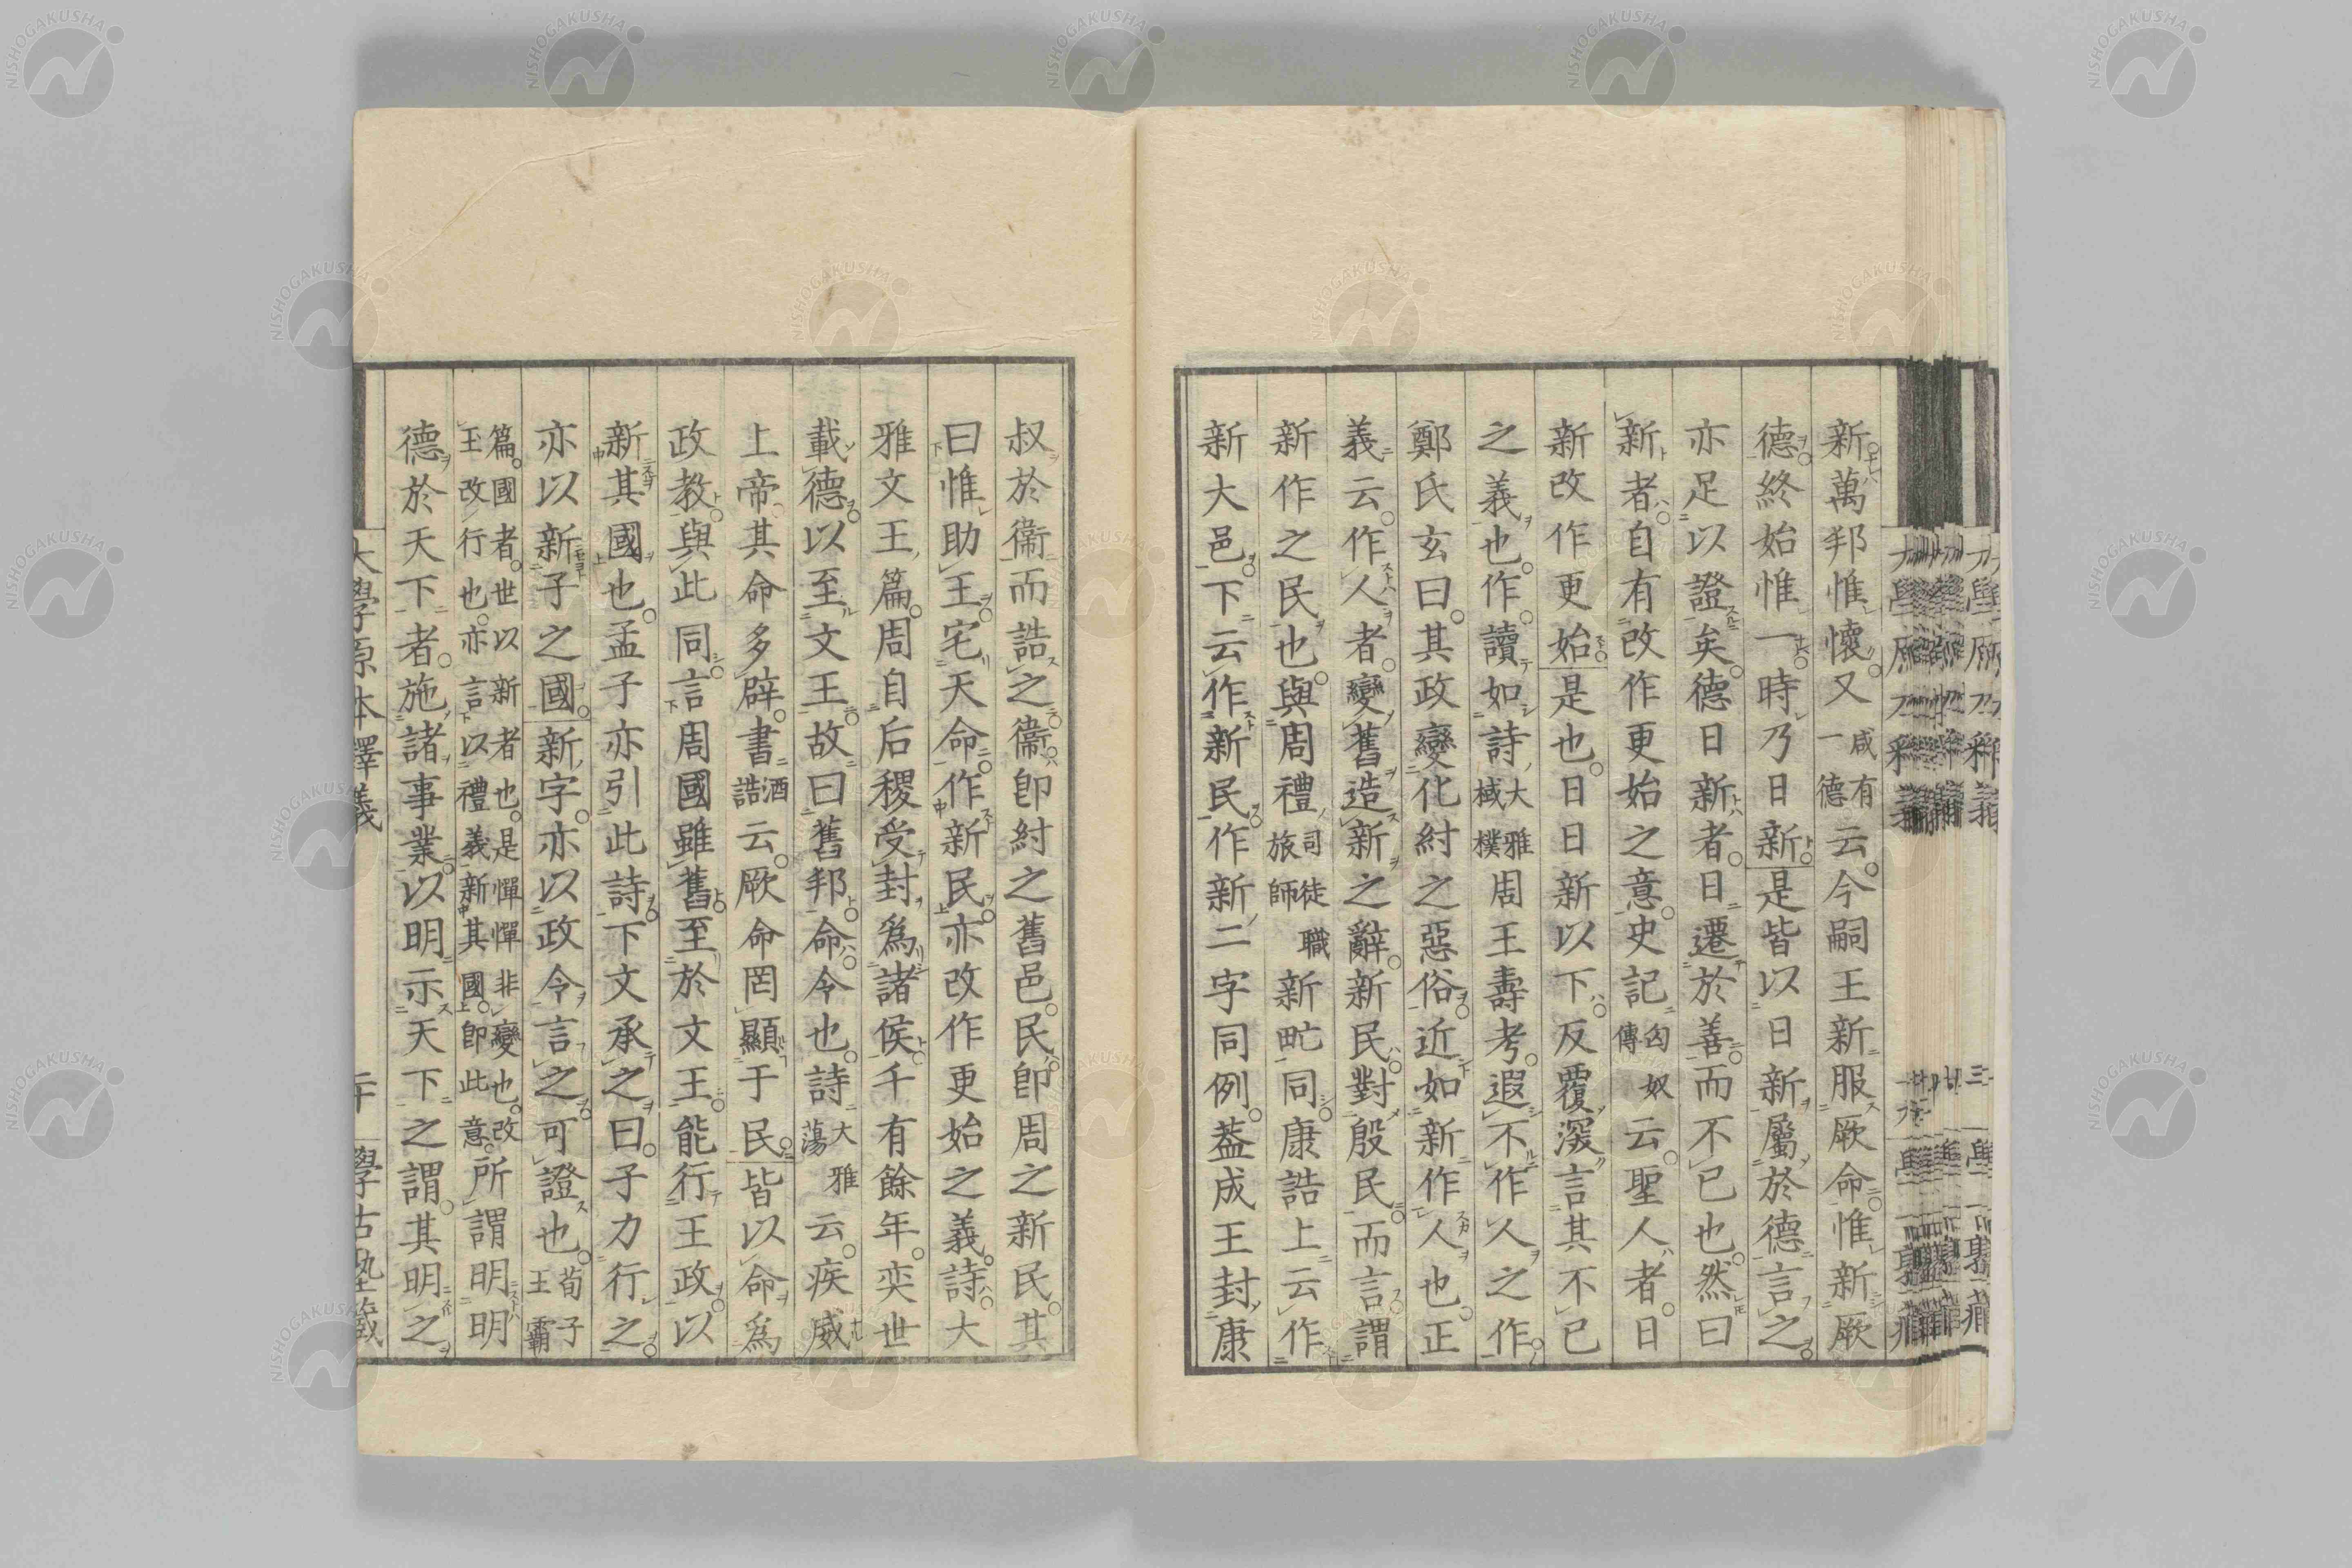 新萬邦惟懷又咸有一德云今嗣王新服厥命惟新厥
德終始惟一時乃日新是皆以日新屬於德言之
亦足以證矣德日新者日遷於善而不已也然曰
新者自有改作更始之意史記匈奴傳云聖人者日
新改作更始是也日日新以下反覆深言其不已
之義也作讀如詩大雅棫樸周王壽考遐不作人之作
鄭氏玄曰其政變化紂之惡俗近如新作人也正
義云作人者變舊造新之辭新民對殷民而言謂
新作之民也與周禮司徒旅師職新甿同康誥上云作
新大邑下云作新民作新二字同例蓋成王封康
叔於衞而誥之衞卽紂之舊邑民卽周之新民其
曰惟助王宅天命作新民亦改作更始之義詩大
雅文王篇周自后稷受封爲諸侯千有餘年奕世
載德以至文王故曰舊邦命命令也詩大雅蕩云疾威
上帝其命多辟書酒誥云厥命罔顯于民皆以命爲
政教與此同言周國雖舊至於文王能行王政以
新其國也孟子亦引此詩下文承之曰子力行之
亦以新子之國新字亦以政令言之可證也荀子王霸
篇國者世以新者也是憚憚非變也改王改行也亦言以禮義新其國卽此意所謂明明
德於天下者施諸事業以明示天下之謂其明之
大學原本釋義 二十 學古塾藏
NISHOGAKUSHA